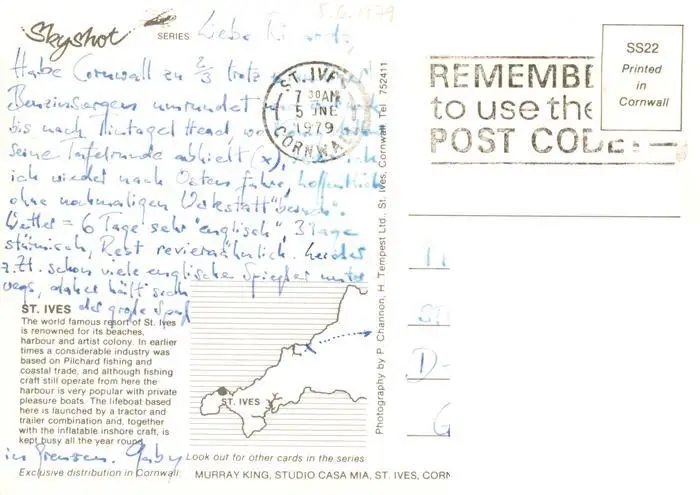 Skyshot
SERIES
Liebe
5.6.1979
Habe Cornwall zu 2/3 trotz
Benzinsorgen umrundet
bis nach Tintagel Head,
seine Tafelrunde abhielt (x),
ich wieder nach Osten fahre, hoffentlich
ohne nochmaligen Werkstatt
Wetter = 6 Tage sehr "englisch", 3 Tage
stürmisch, Rest revierähnlich. Leider
z.Zt. schon viele englische Spießer unter
wegs, daher hält sich
der große Spaß
in Grenzen. Gaby
ST. IVES
7 30AM
5 JNE
1979
CORNWALL
REMEMBE
to use the
POST CODE
SS22
Printed
in
Cornwall
ST. IVES
The world famous resort of St. Ives
is renowned for its beaches,
harbour and artist colony. In earlier
times a considerable industry was
based on Pilchard fishing and
coastal trade, and although fishing
craft still operate from here the
harbour is very popular with private
pleasure boats. The lifeboat based
here is launched by a tractor and
trailer combination and, together
with the inflatable inshore craft, is
kept busy all the year round.
ST. IVES
x
Look out for other cards in the series
Exclusive distribution in Cornwall: MURRAY KING, STUDIO CASA MIA, ST. IVES, CORN
Photography by P. Channon, H. Tempest Ltd., St. Ives, Cornwall Tel. 752411
D-